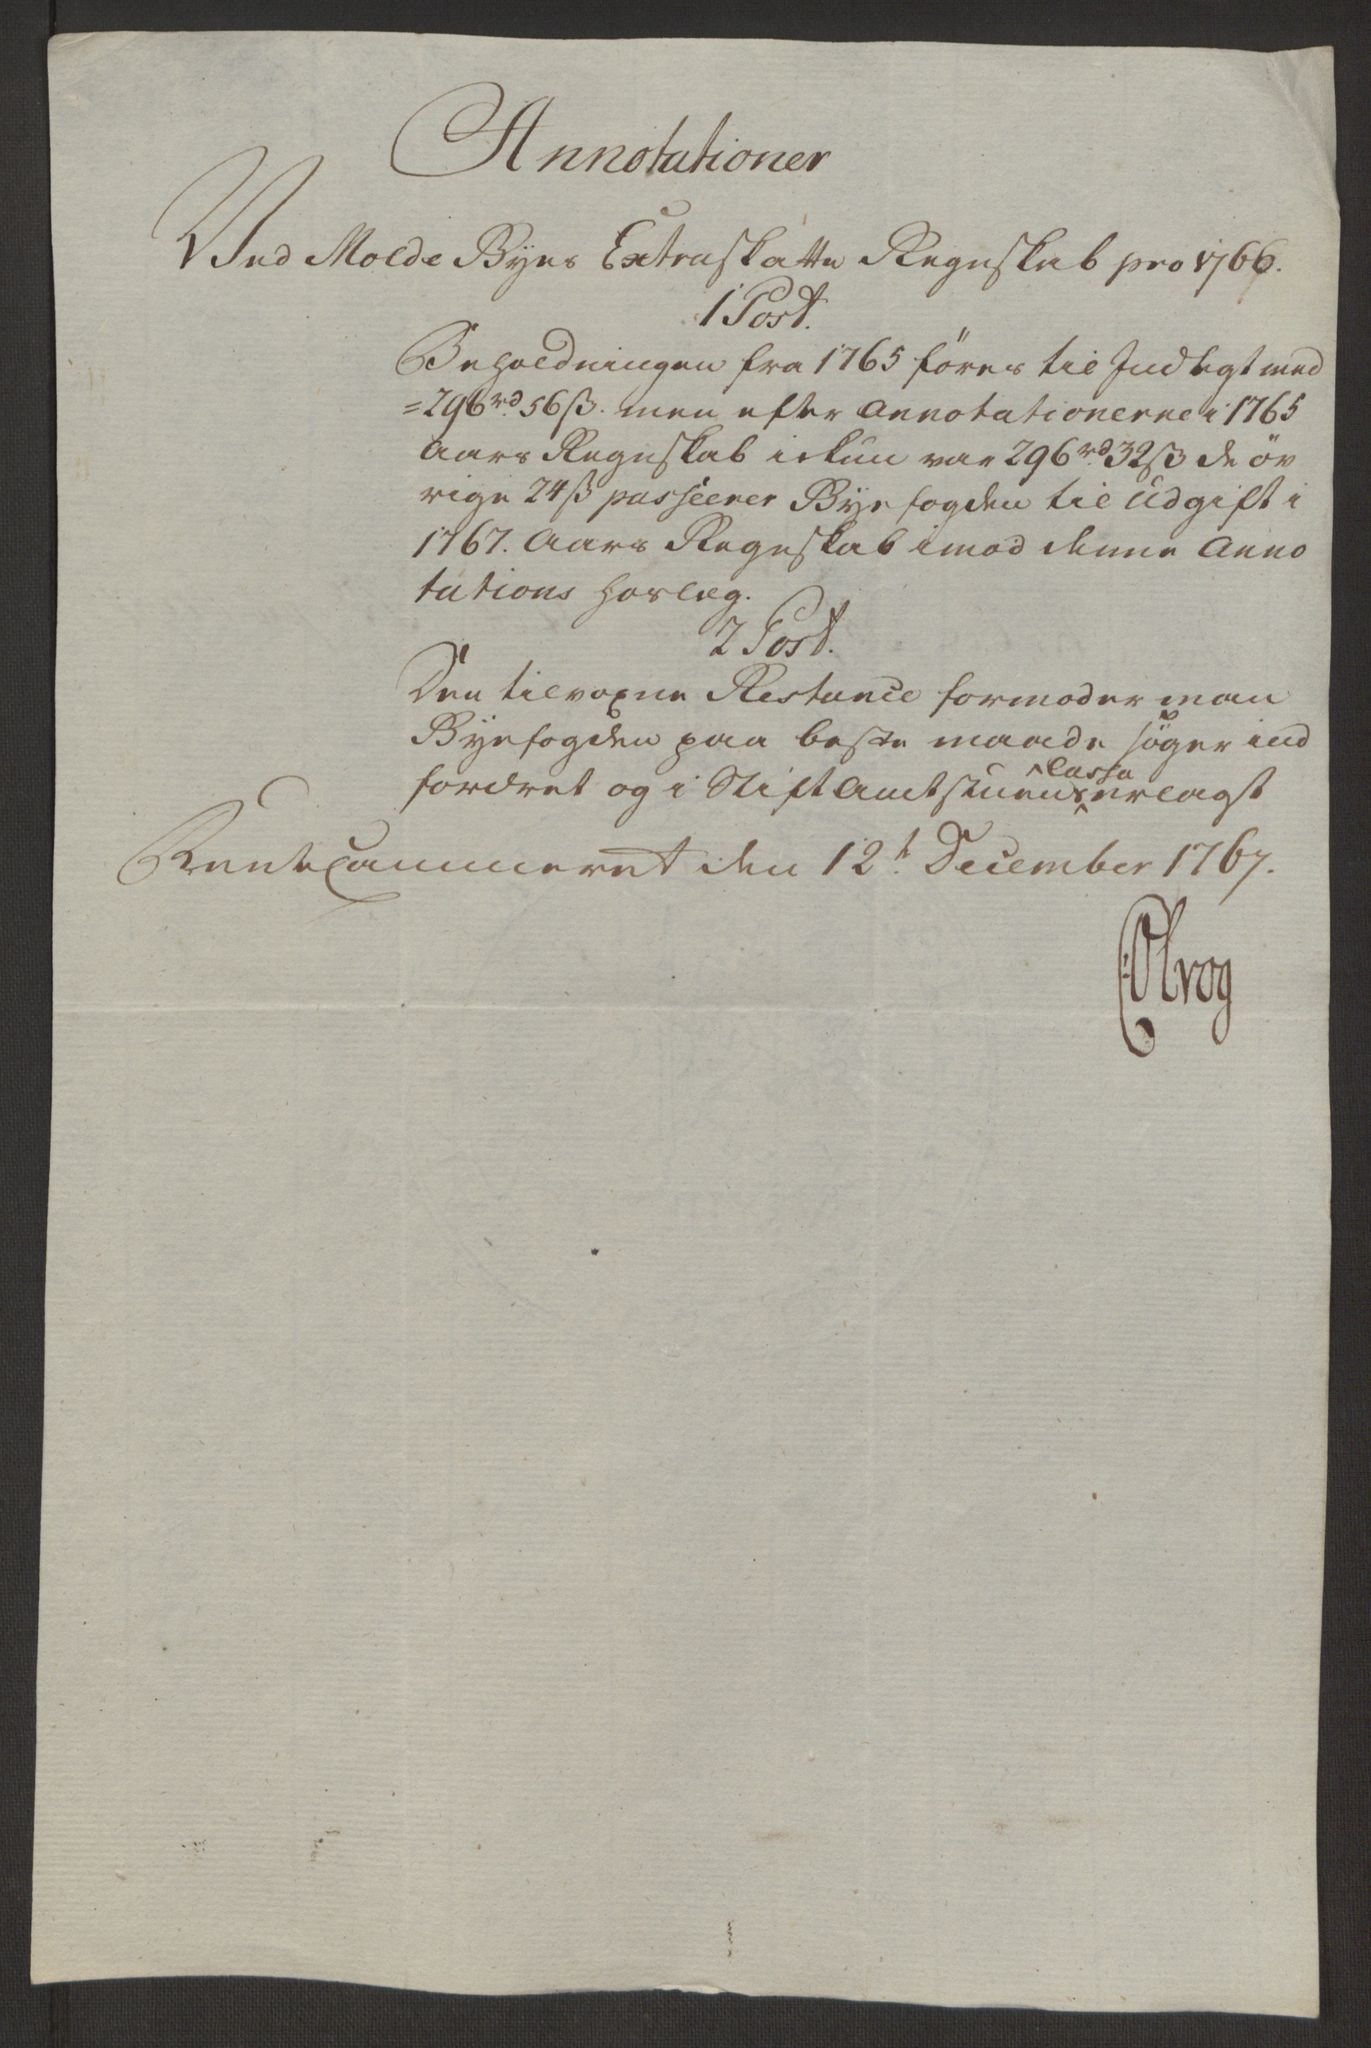 Annotationer
Ved Molde Byes Extraskatte Regnskab pro 1766.
1 Post.
Beholdningen fra 1765 föres til Indtegt med
=296rd 56ß. men efter Annotationerne i 1765
Aars Regnskab ickun var 296rd 32ß de öv
rige 24ß passeerer Byefogden til Udgift i
1767. Aars Regnskab imod denne Anno
tations Forlæg.
2 Post.
Den tilvoxne Restance formoder man
Byefogden paa beste maade söger ind
fordret og i StiftAmtstuens Cassa erlagt
RenteCammeret den 12t December 1767.
Olrog